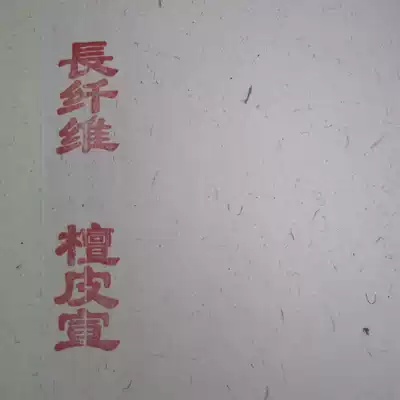 長纤维
檀皮宣